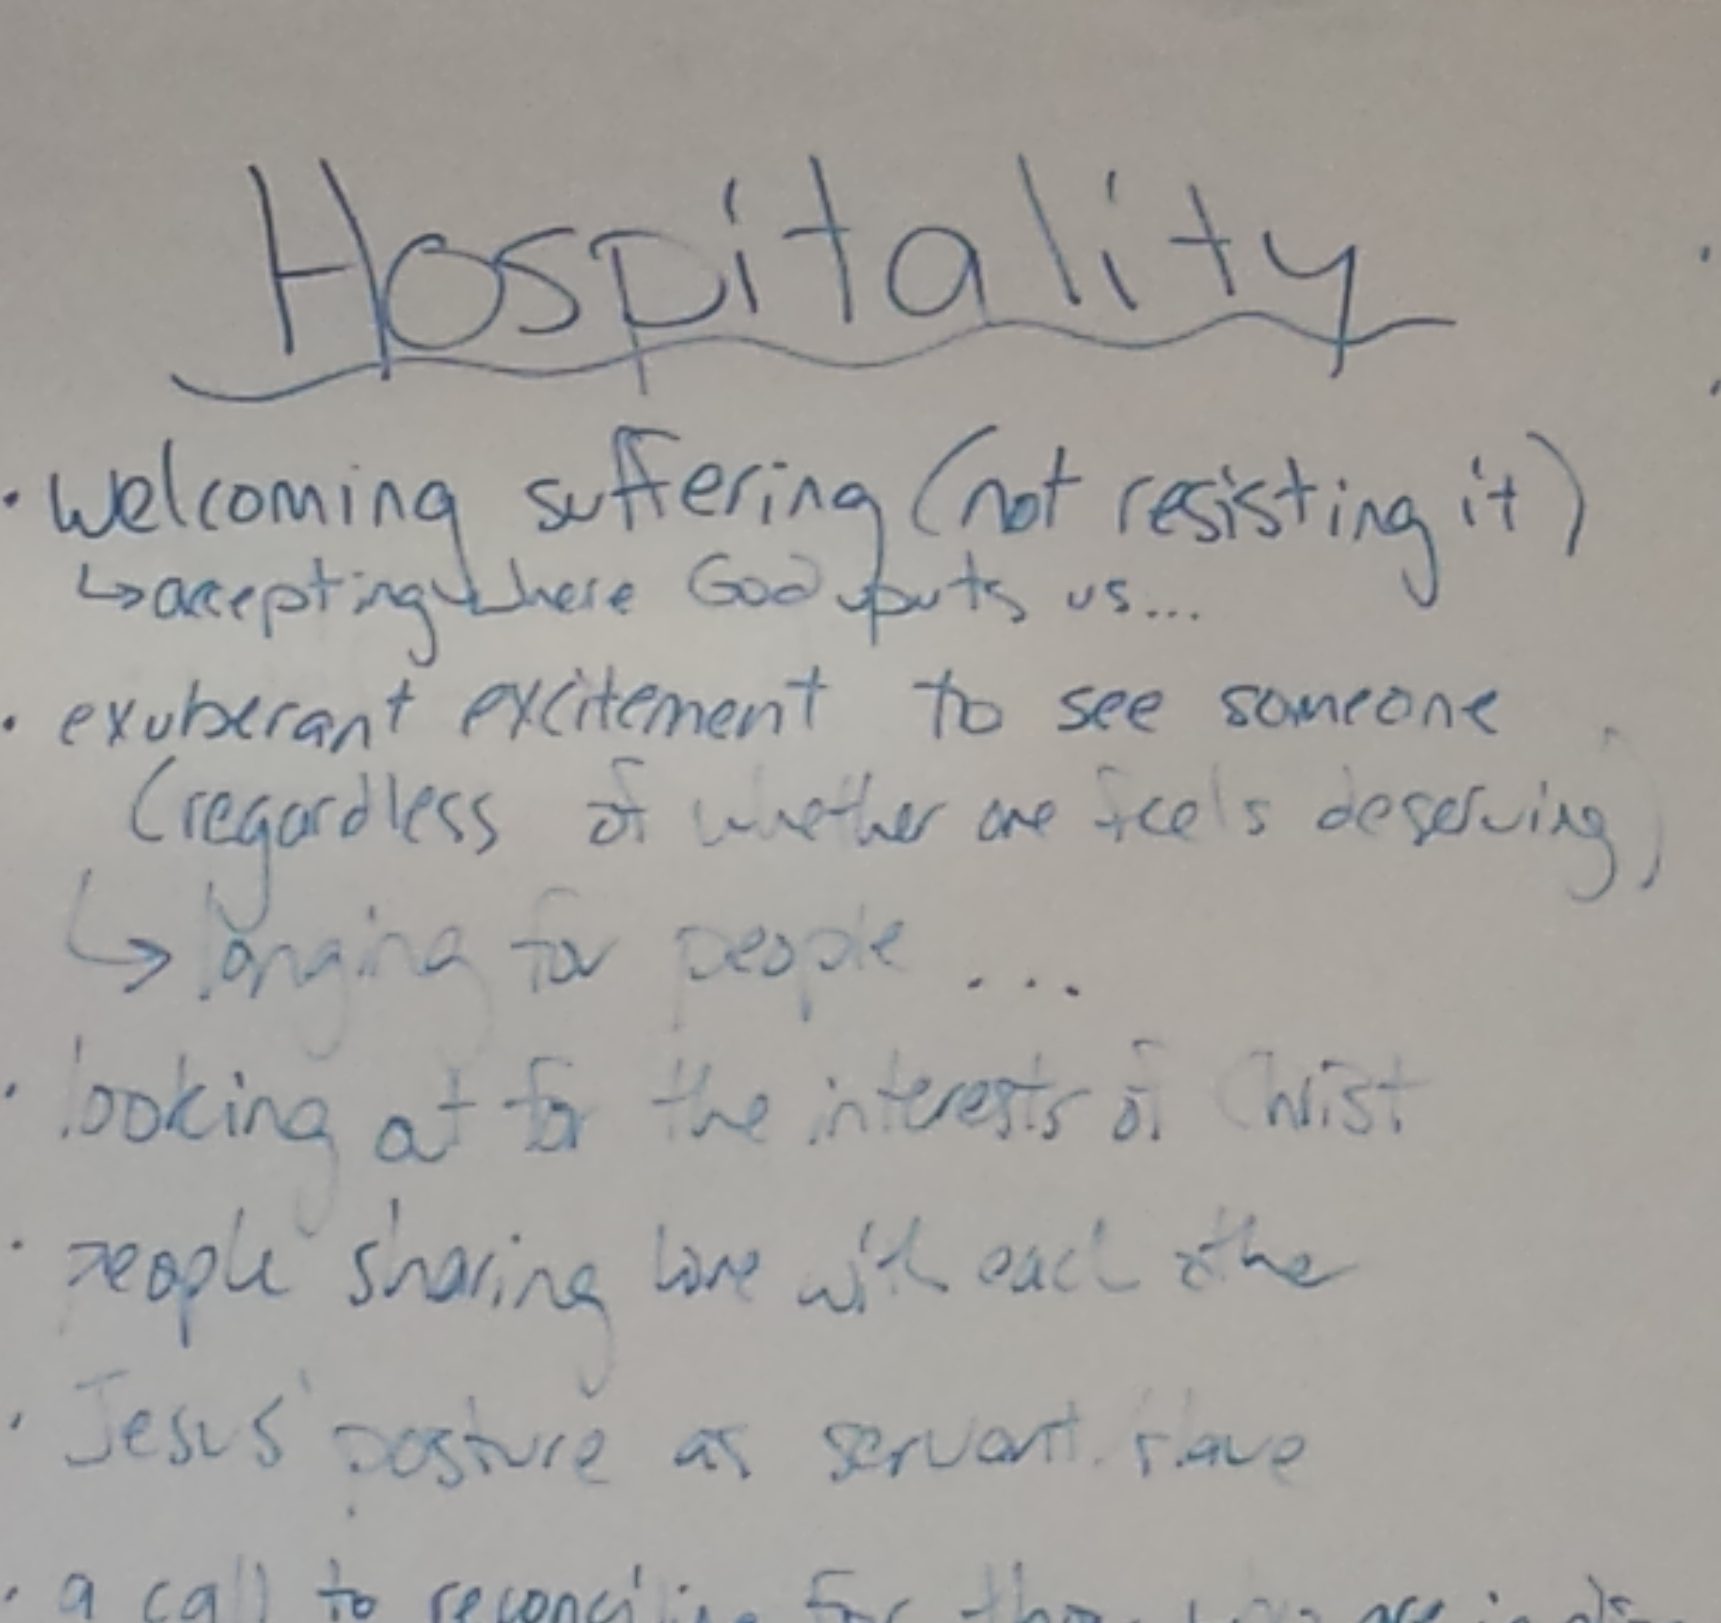 Hospitality
• welcoming suffering (not resisting it)
↳ accepting where God puts us...
• exuberant excitement to see someone
(regardless of whether one feels deserving)
↳ longing for people ...
• looking at for the interests of Christ
• people sharing love with each other
• Jesus' posture as servant/slave
• a call to